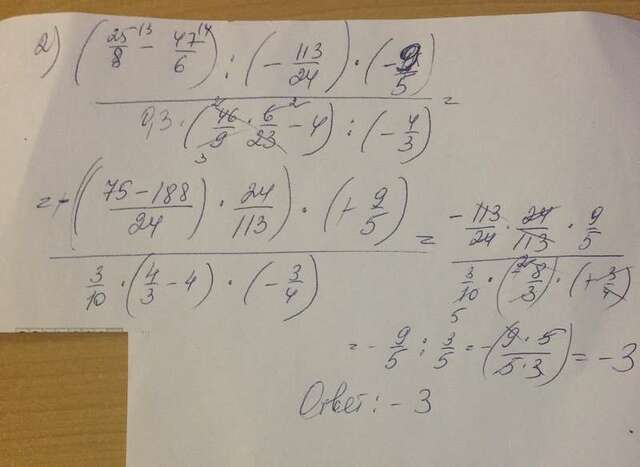 2) (25/8 - 47/6) : (- 113/24) · (- 9/5)
0,3 · (46/9 · 6/23 - 4) : (- 4/3) =
= -((75 - 188)/24 · 24/113) · (+ 9/5)
3/10 · (4/3 - 4) · (- 3/4)
= - 113/24 · 24/113 · 9/5
3/10 · (8/3) · (+ 3/4)
= - 9/5 : 3/5 = -(9 · 5/5 · 3) = - 3
Ответ: - 3